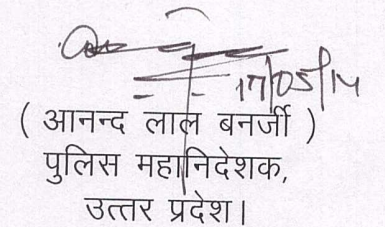 17/05/14
( आनन्द लाल बनर्जी )
पुलिस महानिदेशक,
उत्तर प्रदेश।